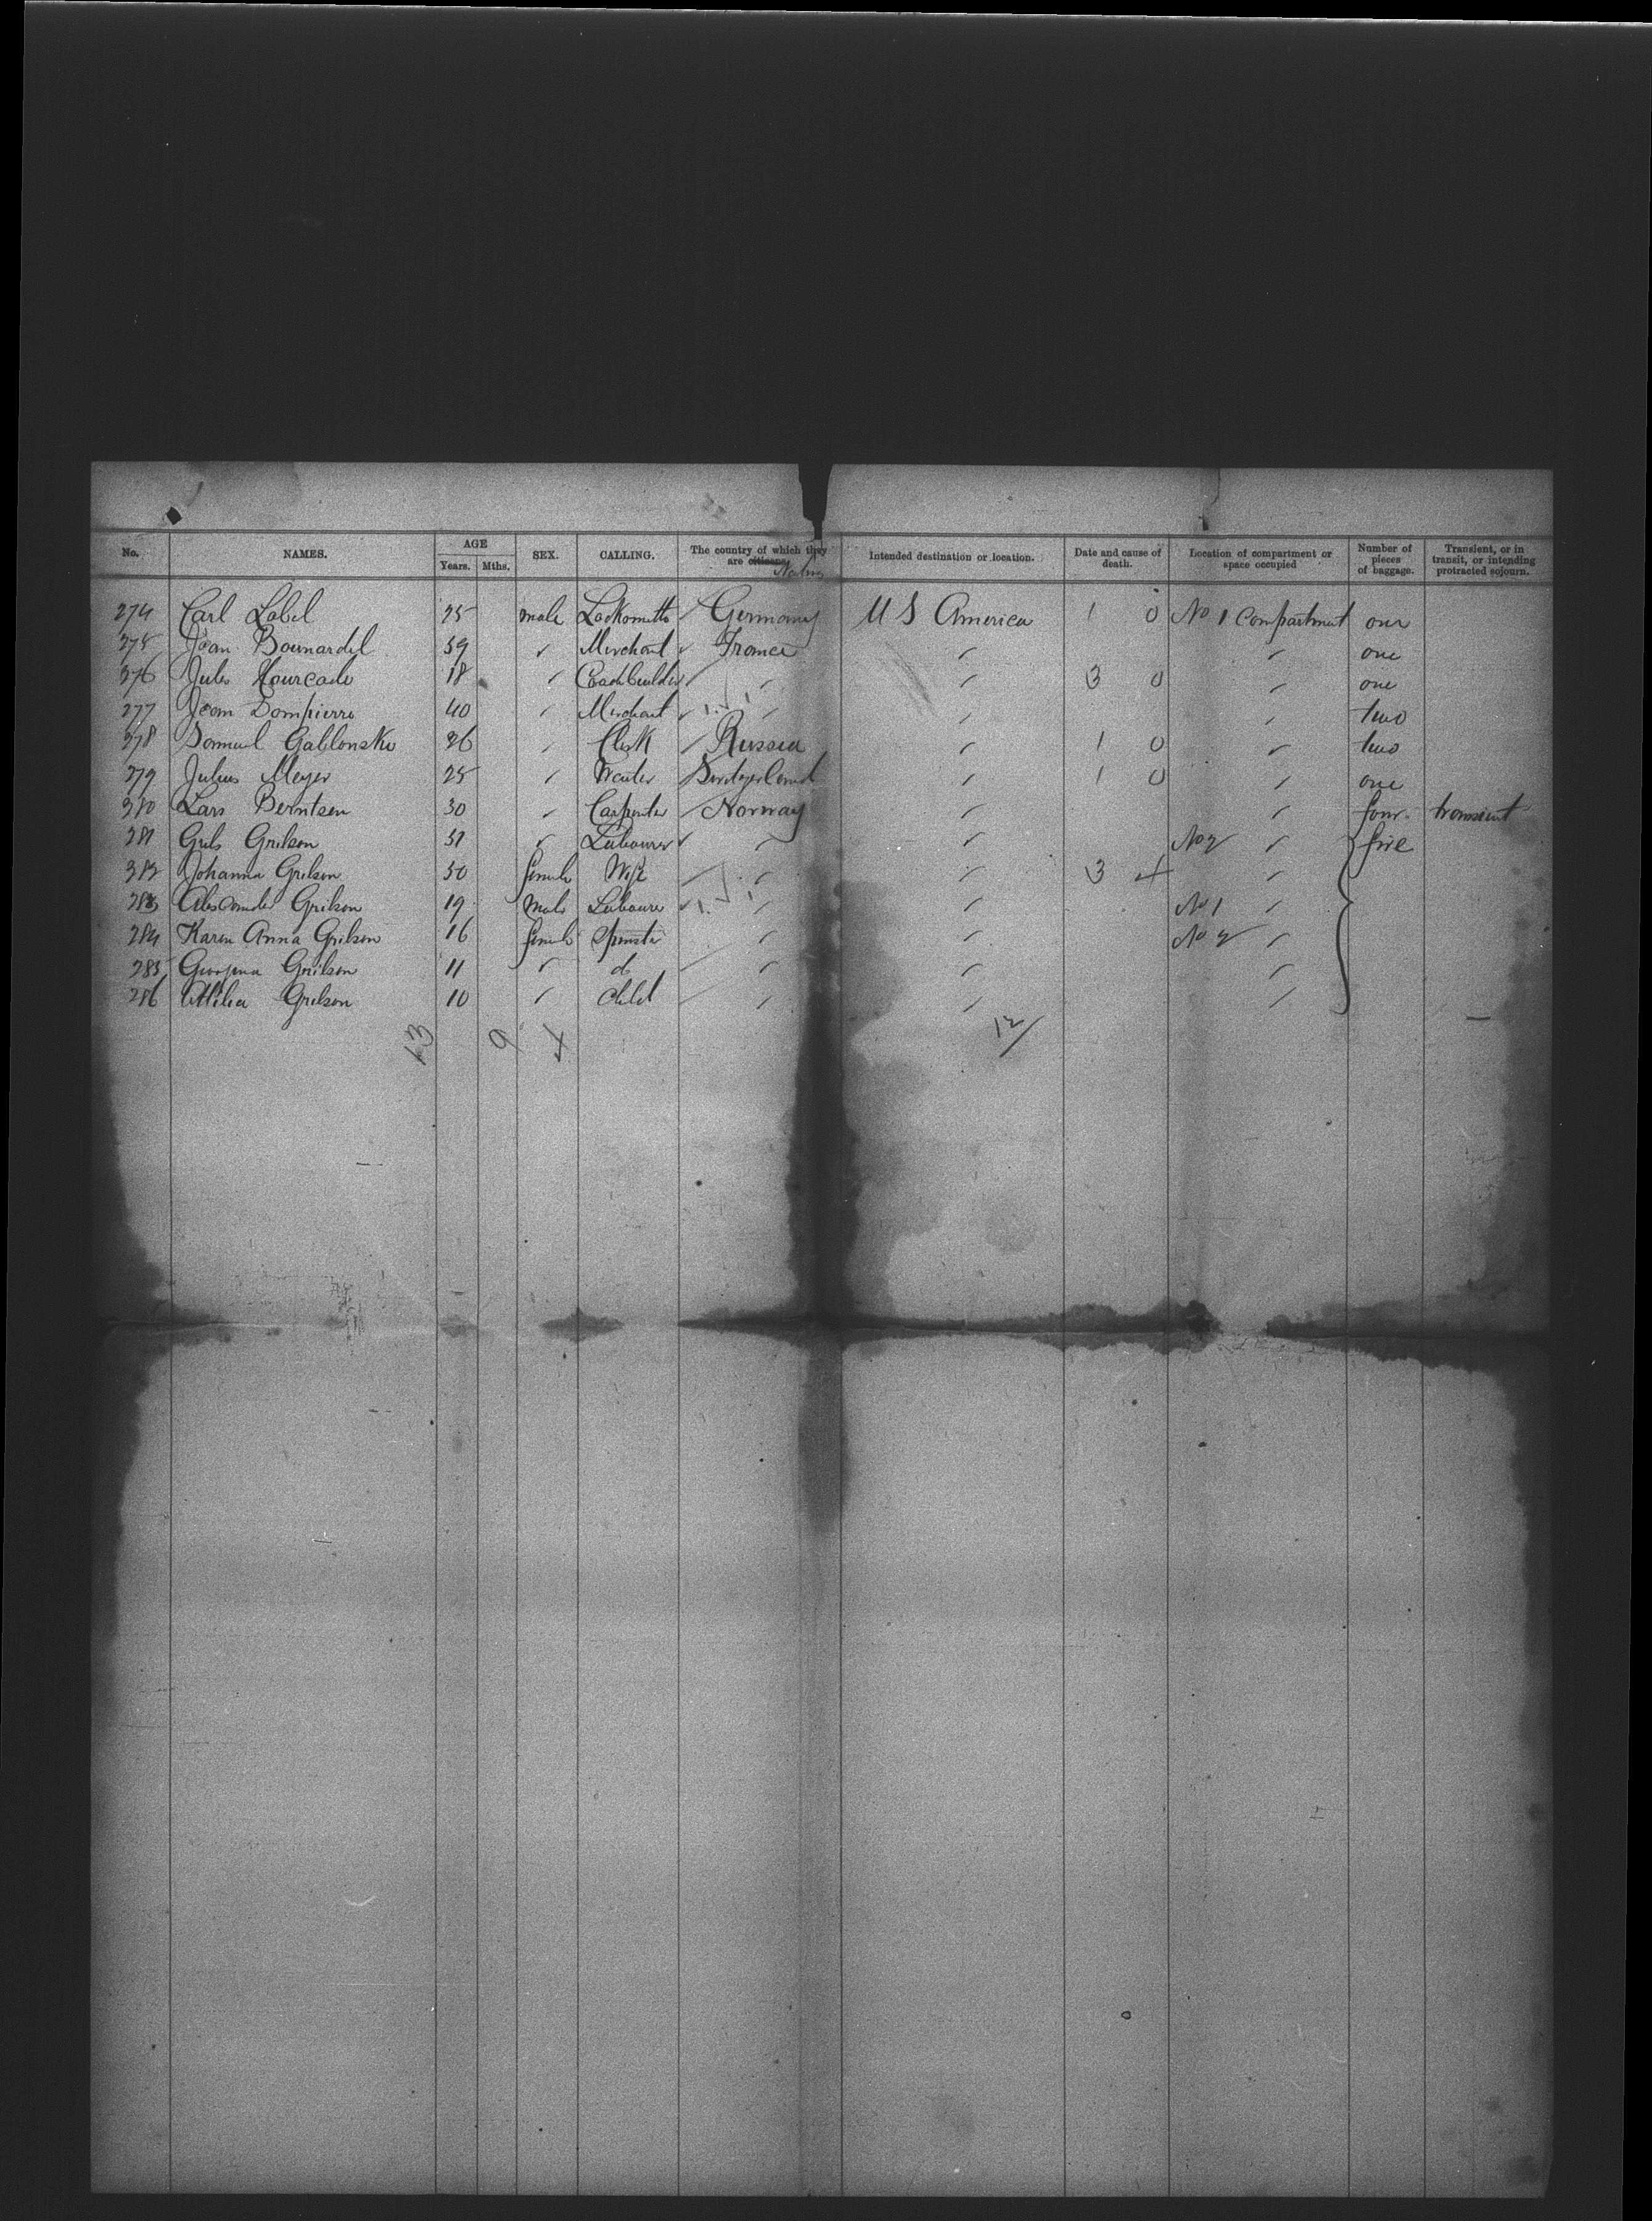 No. NAMES. AGE Years. Mths. SEX. CALLING. The country of which they are citizens Natives Intended destination or location. Date and cause of death. Location of compartment or space occupied Number of pieces of baggage. Transient, or in transit, or intending protracted sojourn.
274 Carl Label 25 male Locksmith Germany U S America 1 0 No 1 Compartment one
275 Jean Bounardel 39 " Merchant France " " one
276 Jules Hourcade 18 " Coachbuilder " " 3 0 " one
277 Jean Dompierre 40 " Merchant " " " two
278 Samuel Gablonski 26 " Clerk Russia " 1 0 " two
279 Julius Meyer 25 " Waiter Switzerland " 1 0 " one
280 Lars Berntsen 30 " Carpenter Norway " four transient
281 Grilson " Labourer " " No 2 " five
282 Johanna Grilson 50 female Wife " " 3 4 "
283 Alexander Grilson 19 male Labourer " " No 1 "
284 Karen Anna Grilson 16 female Spinster " " No 2 "
285 Grilson 11 " do " " "
286 Grilson 10 " Child " " "
13 9 4 12/